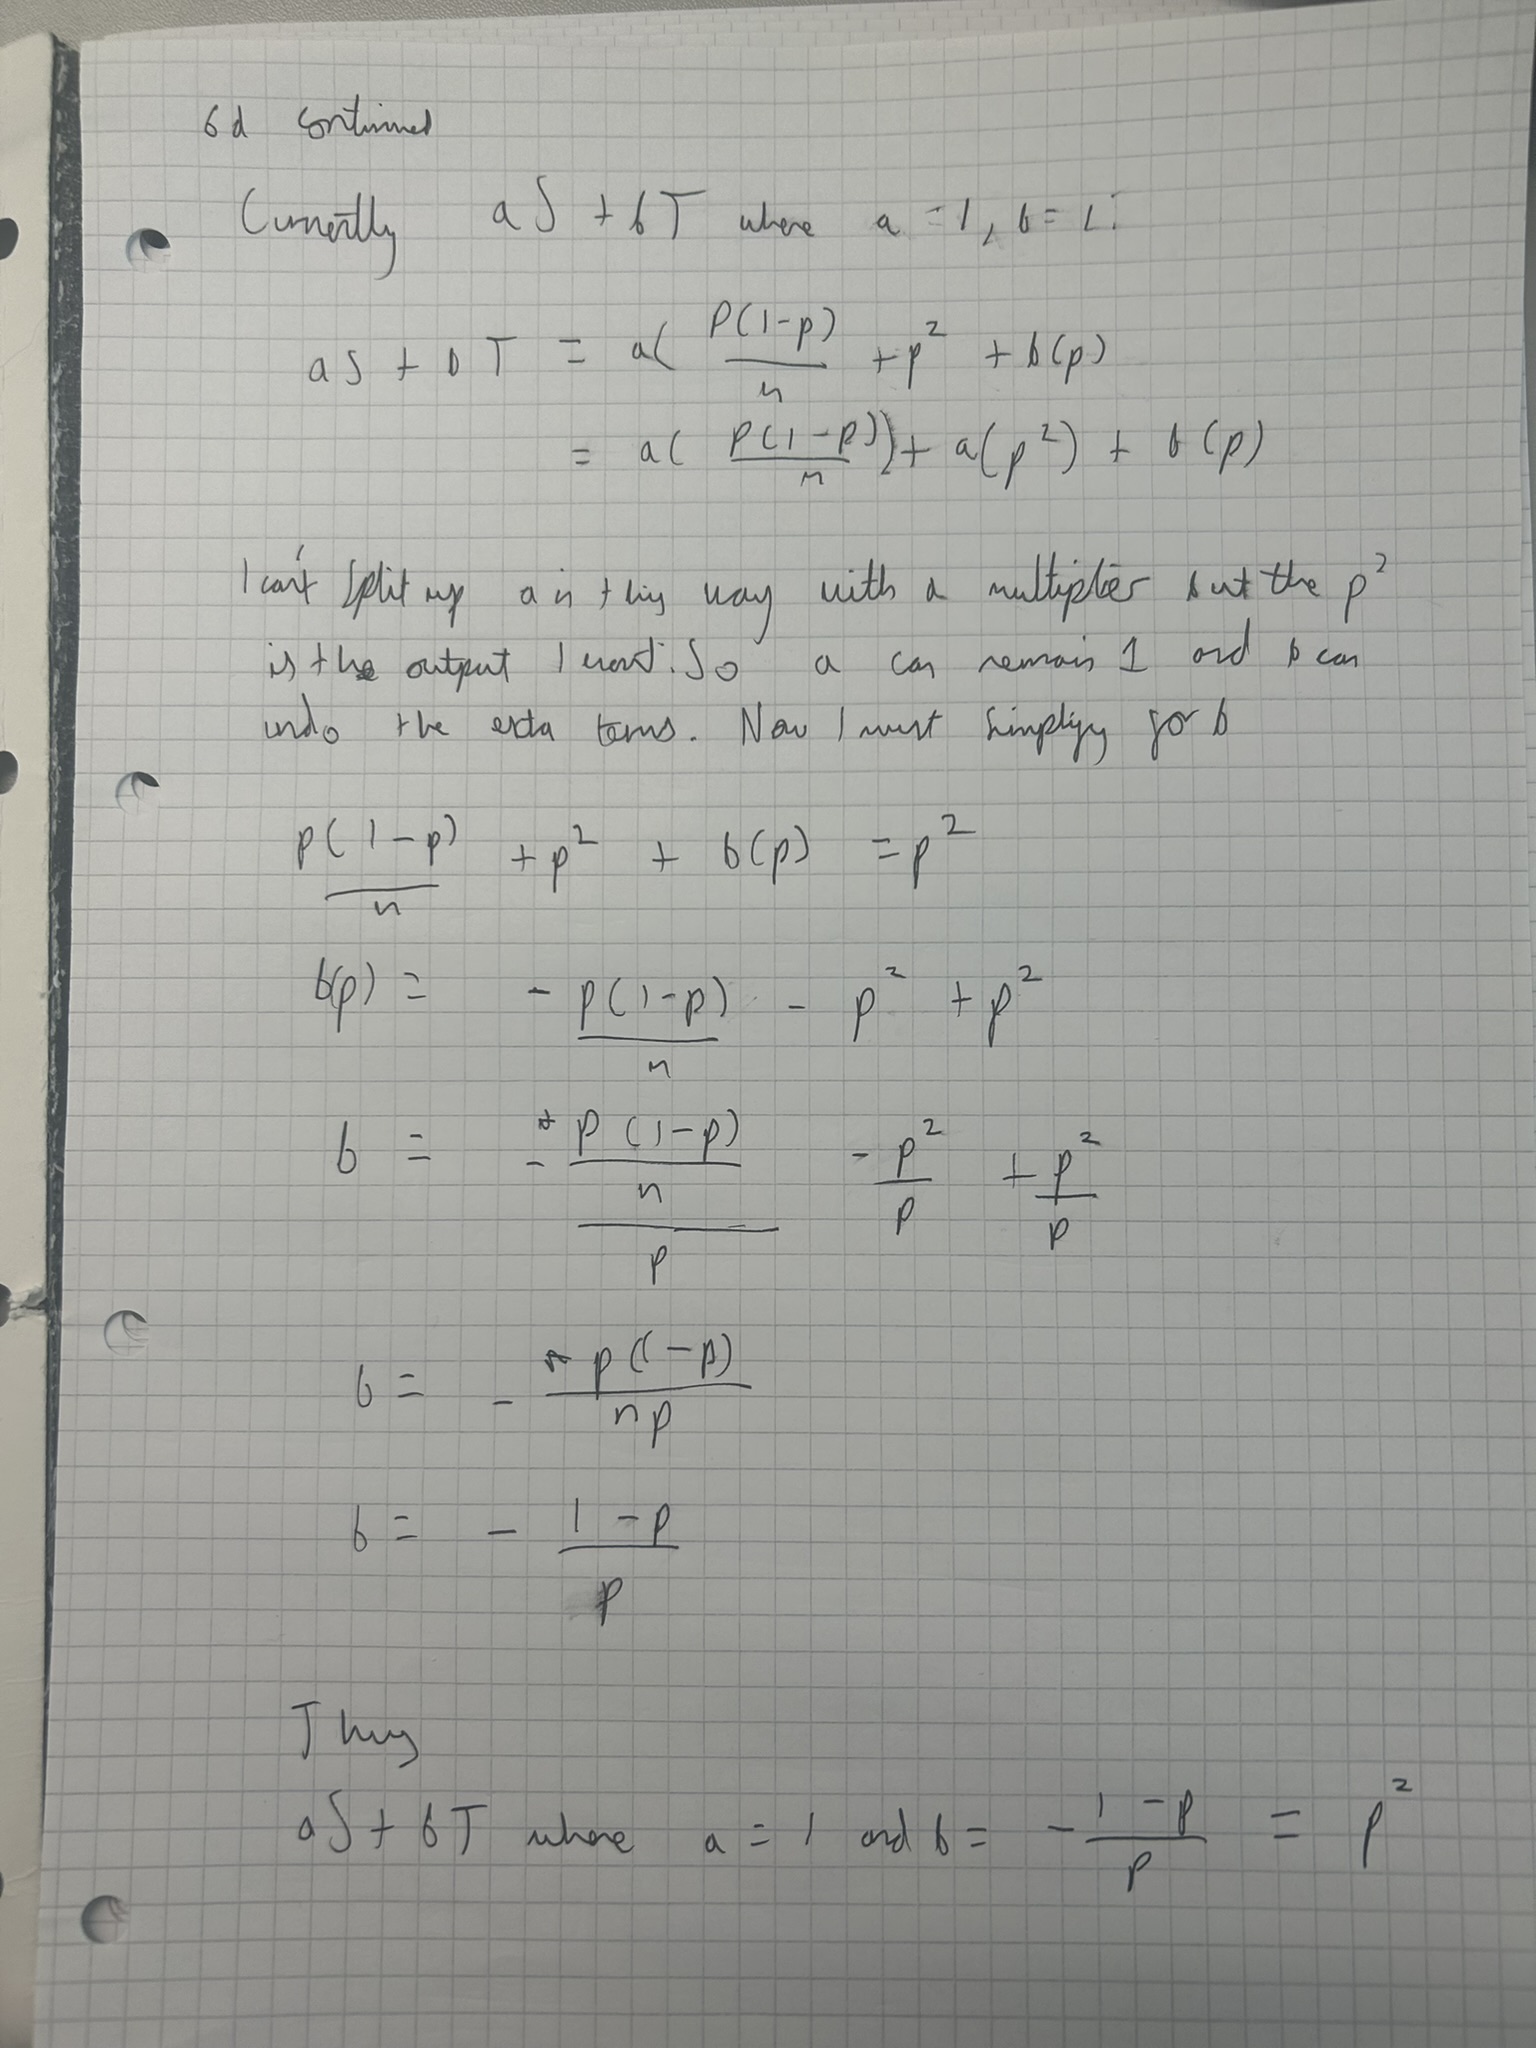 6d continued
Currently aS + bT where a = 1, b = 1:
aS + bT = a( P(1-p)/n + p² + b(p)
= a( P(1-p)/n ) + a(p²) + b(p)
I can't split up a in this way with a multiplier but the p²
is the output I want. So a can remain 1 and b can
undo the exta terms. Now I must simplify for b
p(1-p)/n + p² + b(p) = p²
b(p) = - p(1-p)/n - p² + p²
b = - p(1-p)/n/p - p²/p + p²/p
b = - p(1-p)/np
b = - 1-p/p
Thus
aS + bT where a = 1 and b = - 1-p/p = p²